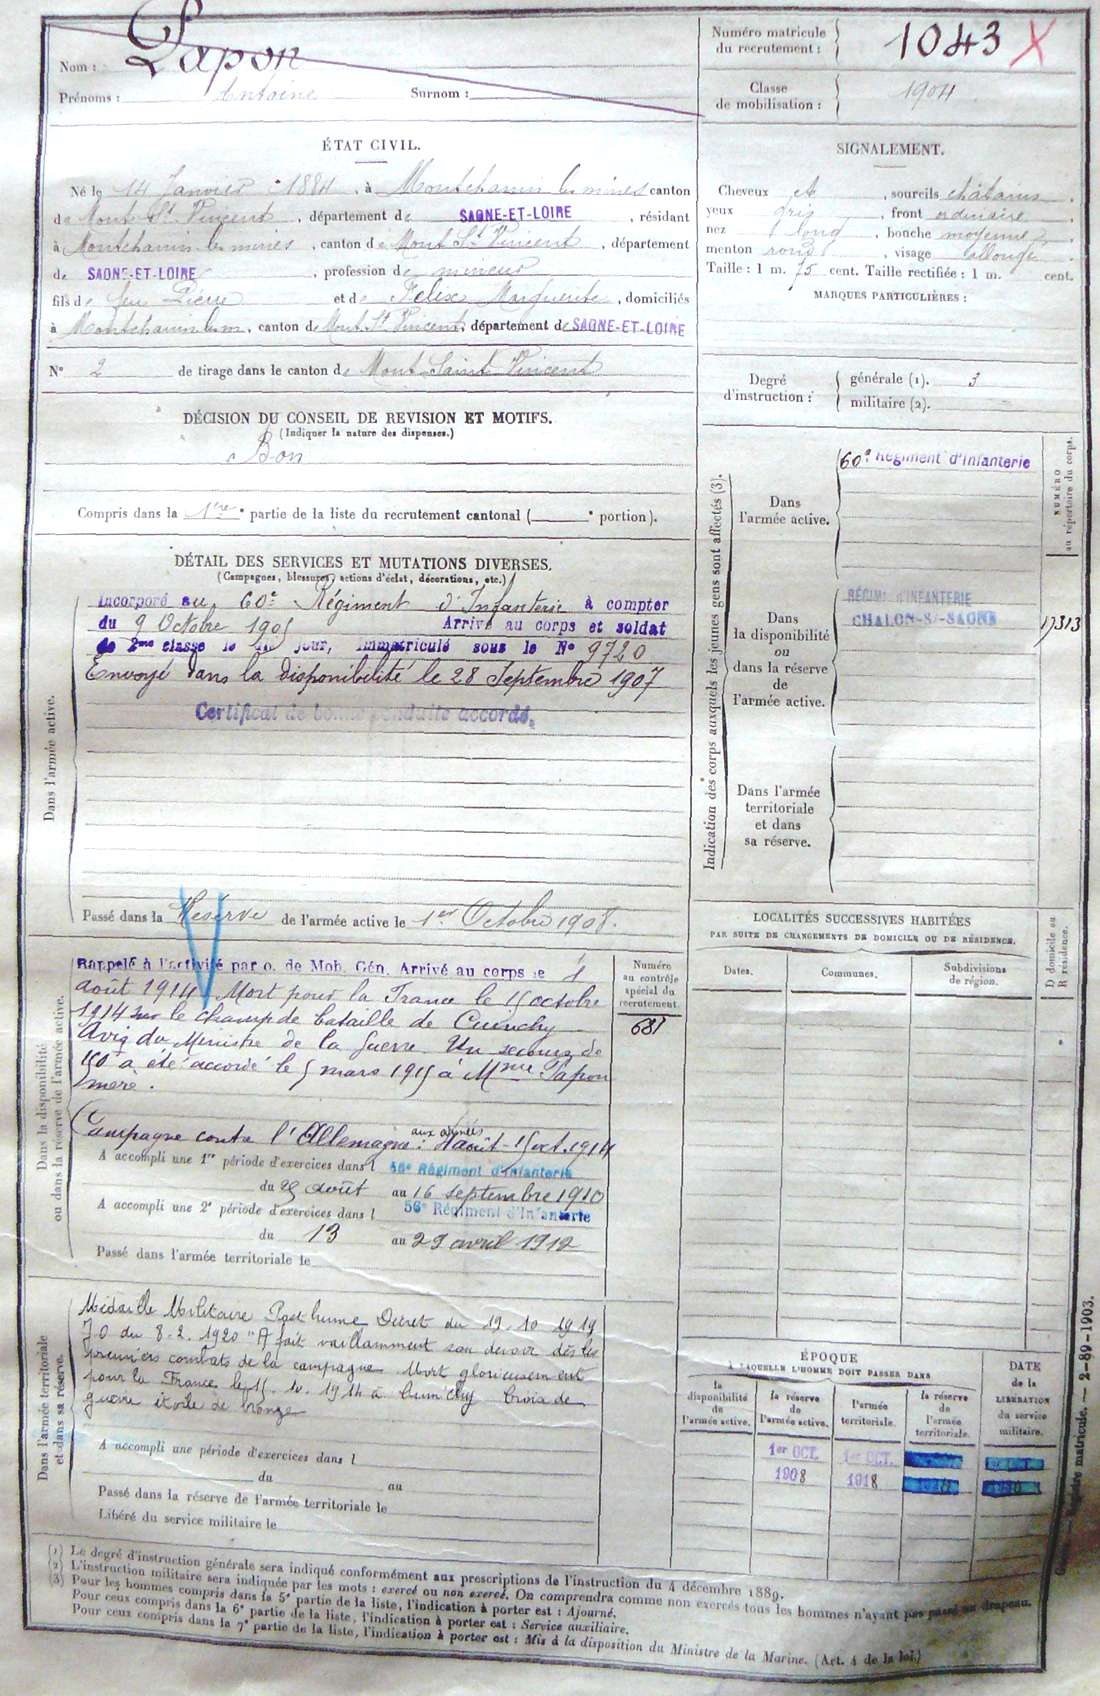 Nom : Papon
Prénoms : Antoine Surnom :
Numéro matricule du recrutement : 1043 X
Classe de mobilisation : 1904
ÉTAT CIVIL.
Né le 14 Janvier 1884, à Montchanin les mines canton
de Mont St Vincent, département de SAONE-ET-LOIRE, résidant
à Montchanin les mines, canton de Mont St Vincent, département
de SAONE-ET-LOIRE, profession de mineur
fils de feu Pierre et de Felix Marguerite, domiciliés
à Montchanin les m., canton de Mont St Vincent, département de SAONE-ET-LOIRE
N° 2 de tirage dans le canton de Mont Saint Vincent
SIGNALEMENT.
Cheveux et, sourcils châtains.
yeux gris, front ordinaire.
nez long, bouche moyenne
menton rond, visage allongé.
Taille : 1 m. 75 cent. Taille rectifiée : 1 m. cent.
MARQUES PARTICULIÈRES :
Degré d'instruction : générale (1). 3
militaire (2).
DÉCISION DU CONSEIL DE REVISION ET MOTIFS.
(Indiquer la nature des dispenses.)
Bon
Compris dans la 1ère partie de la liste du recrutement cantonal ( e portion).
DÉTAIL DES SERVICES ET MUTATIONS DIVERSES.
(Campagnes, blessures, actions d'éclat, décorations, etc.)
Dans l'armée active.
Incorporé au 60e Régiment d'Infanterie à compter
du 9 Octobre 1905 Arrivé au corps et soldat
de 2me classe le dit jour, immatriculé sous le N° 9720
Envoyé dans la disponibilité le 28 Septembre 1907
Certificat de bonne conduite accordé.
Passé dans la Réserve de l'armée active le 1er Octobre 1908.
Indication des corps auxquels les jeunes gens sont affectés (3).
NUMÉRO au répertoire du corps.
Dans l'armée active.
60e Régiment d'Infanterie
Dans la disponibilité ou dans la réserve de l'armée active.
RÉGIMt d'INFANTERIE
CHALON-S/-SAONE
Dans l'armée territoriale et dans sa réserve.
Dans la disponibilité ou dans la réserve de l'armée active.
Rappelé à l'activité par o. de Mob. Gén. Arrivé au corps le 4
août 1914 Mort pour la France le 15 octobre
1914 sur le champ de bataille de Cuinchy
Avis du Ministre de la Guerre. Un secours de
150 a été accordé le 5 mars 1915 à Mme Papon
mère.
Campagne contre l'Allemagne : aux armées 4 août - 15 oct. 1914
Numéro au contrôle spécial du recrutement.
681
A accompli une 1re période d'exercices dans l 56e Régiment d'Infanterie
du 25 août au 16 septembre 1910
A accompli une 2e période d'exercices dans l 56e Régiment d'Infanterie
du 13 au 29 avril 1912
Passé dans l'armée territoriale le
LOCALITÉS SUCCESSIVES HABITÉES
PAR SUITE DE CHANGEMENTS DE DOMICILE OU DE RÉSIDENCE.
Dates. Communes. Subdivisions de région. D domicile ou R résidence.
Dans l'armée territoriale et dans sa réserve.
Médaille Militaire Posthume Décret du 19.10.1919
J.O du 8.2.1920 "A fait vaillamment son devoir dès les
premiers combats de la campagne. Mort glorieusement
pour la France le 15.10.1914 à Cuinchy Croix de
guerre étoile de bronze
A accompli une période d'exercices dans l
du au
Passé dans la réserve de l'armée territoriale le
Libéré du service militaire le
ÉPOQUE
À LAQUELLE L'HOMME DOIT PASSER DANS
la disponibilité de l'armée active.
la réserve de l'armée active.
l'armée territoriale.
la réserve de l'armée territoriale.
DATE de la LIBÉRATION du service militaire.
1er OCT. 1er OCT.
1908 1918
(1) Le degré d'instruction générale sera indiqué conformément aux prescriptions de l'instruction du 4 décembre 1889.
(2) L'instruction militaire sera indiquée par les mots : exercé ou non exercé. On comprendra comme non exercés tous les hommes n'ayant pas passé au drapeau.
(3) Pour les hommes compris dans la 5e partie de la liste, l'indication à porter est : Ajourné.
Pour ceux compris dans la 6e partie de la liste, l'indication à porter est : Service auxiliaire.
Pour ceux compris dans la 7e partie de la liste, l'indication à porter est : Mis à la disposition du Ministre de la Marine. (Art. 4 de la loi.)
Registre matricule. — 2-89-1903.